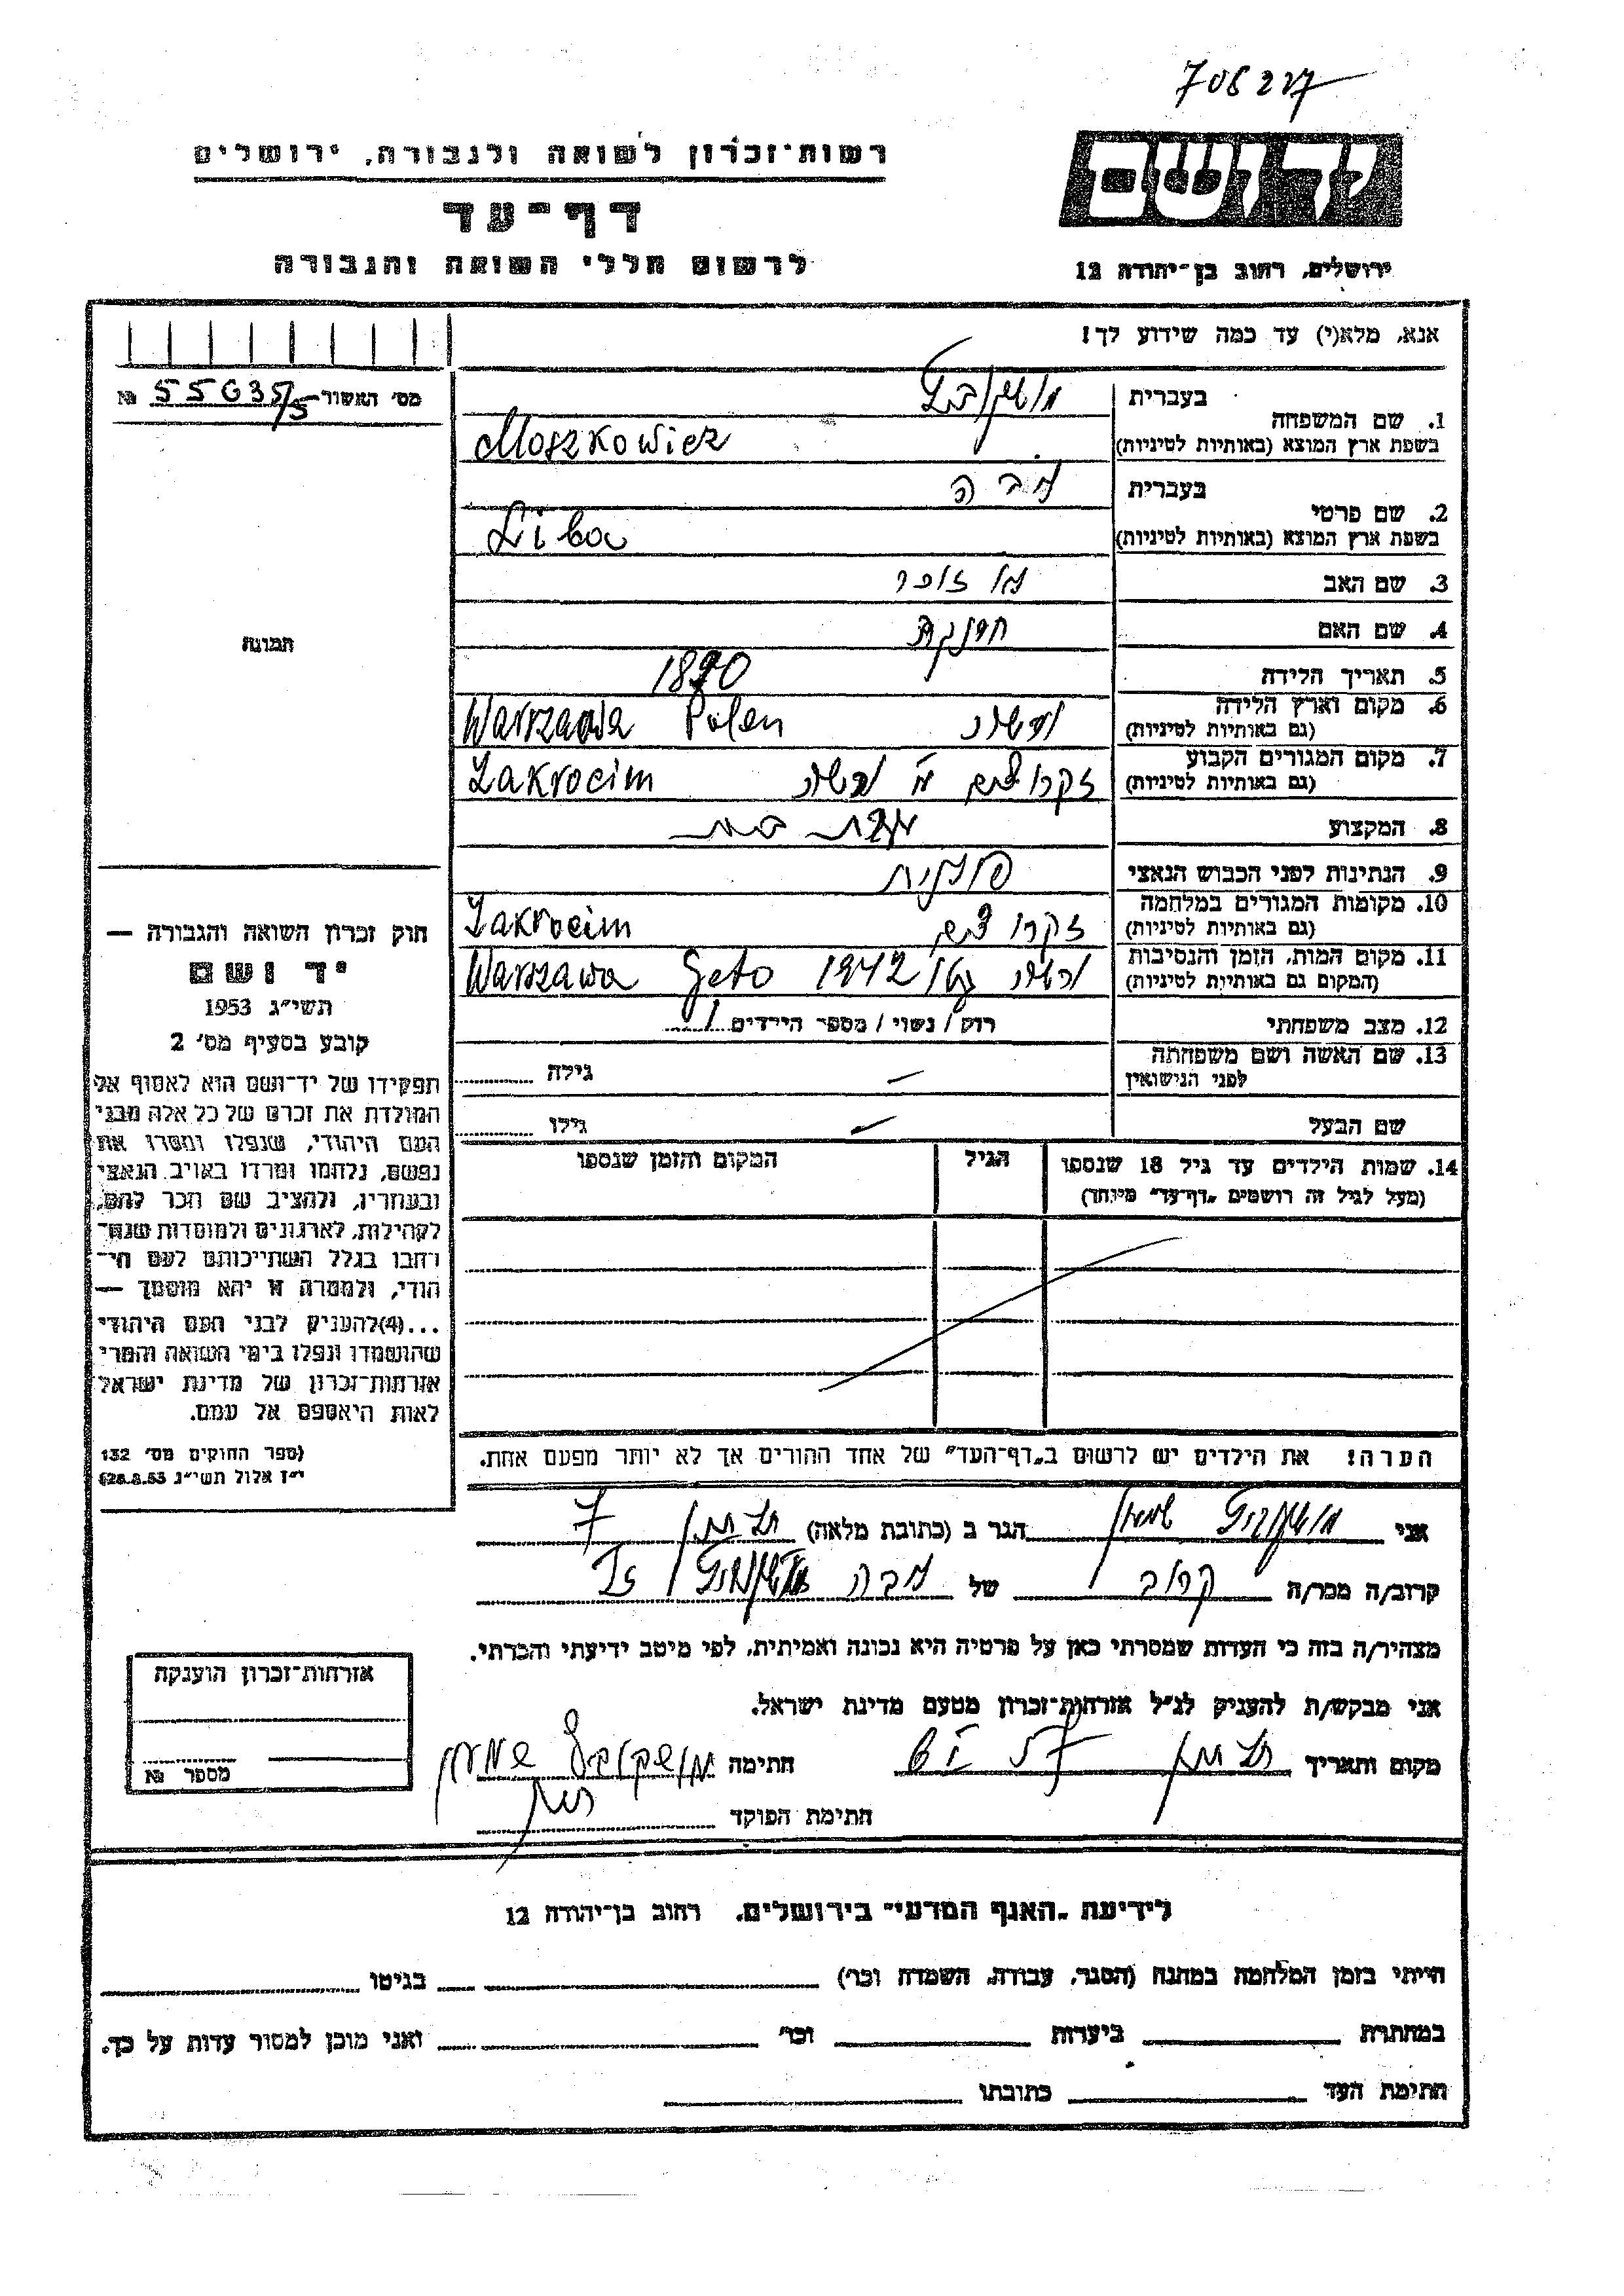 706227
רשות־זכרון לשואה ולגבורה, ירושלים
דף־עד
לרשום חללי השואה והגבורה
יד ושם
ירושלים, רחוב בן־יהודה 12
אנא, מלא(י) עד כמה שידוע לך!
מס׳ האשור № 55635/5
תמונה
1. שם המשפחה
בעברית מושקוביץ
בשפת ארץ המוצא (באותיות לטיניות) Moszkowicz
2. שם פרטי
בעברית ליבה
בשפת ארץ המוצא (באותיות לטיניות) Liba
3. שם האב
4. שם האם
5. תאריך הלידה 1890
6. מקום וארץ הלידה (גם באותיות לטיניות) ורשה Warszawa Polen
7. מקום המגורים הקבוע (גם באותיות לטיניות) זקרוצים ורשה Zakrocim
8. המקצוע עקרת בית
9. הנתינות לפני הכבוש הנאצי פולנית
10. מקומות המגורים במלחמה (גם באותיות לטיניות) זקרוצים Zakrocim
11. מקום המות, הזמן והנסיבות (המקום גם באותיות לטיניות) ורשה גטו 1942 Warszawa Geto
12. מצב משפחתי רוק / נשוי / מספר הילדים
13. שם האשה ושם משפחתה לפני הנישואין — גילה
שם הבעל — גילו
14. שמות הילדים עד גיל 18 שנספו (מעל לגיל זה רושמים „דף־עד" מיוחד)
הגיל
המקום והזמן שנספו
הערה! את הילדים יש לרשום ב„דף־העד" של אחד ההורים אך לא יותר מפעם אחת.
חוק זכרון השואה והגבורה —
יד ושם
תשי״ג 1953
קובע בסעיף מס׳ 2
תפקידו של יד־ושם הוא לאסוף אל
המולדת את זכרם של כל אלה מבני
העם היהודי, שנפלו ומסרו את
נפשם, נלחמו ומרדו באויב הנאצי
ובעוזריו, ולהציב שם וזכר להם,
לקהילות, לארגונים ולמוסדות שנח־
רבו בגלל השתייכותם לעם הי־
הודי, ולמטרה זו יהא מוסמך —
...(4)להעניק לבני העם היהודי
שהושמדו ונפלו בימי השואה והמרי
אזרחות־זכרון של מדינת ישראל
לאות היאספם אל עמם.
(ספר החוקים מס׳ 132
י״ז אלול תשי״ג 28.8.53)
אני מושקוביץ שמעון הגר ב (כתובת מלאה)
קרוב/ה מכר/ה קרוב של ליבה מושקוביץ
מצהיר/ה בזה כי העדות שמסרתי כאן על פרטיה היא נכונה ואמיתית, לפי מיטב ידיעתי והכרתי.
אני מבקש/ת להעניק לנ״ל אזרחות־זכרון מטעם מדינת ישראל.
מקום ותאריך
חתימה מושקוביץ שמעון
חתימת הפוקד
אזרחות־זכרון הוענקה
מספר №
לידיעת „האגף המדעי" בירושלים, רחוב בן־יהודה 12
הייתי בזמן המלחמה במחנה (הסגר, עבודה, השמדה וכו׳) בגיטו
במחתרת ביערות וכו׳ ואני מוכן למסור עדות על כך.
חתימת העד כתובתו